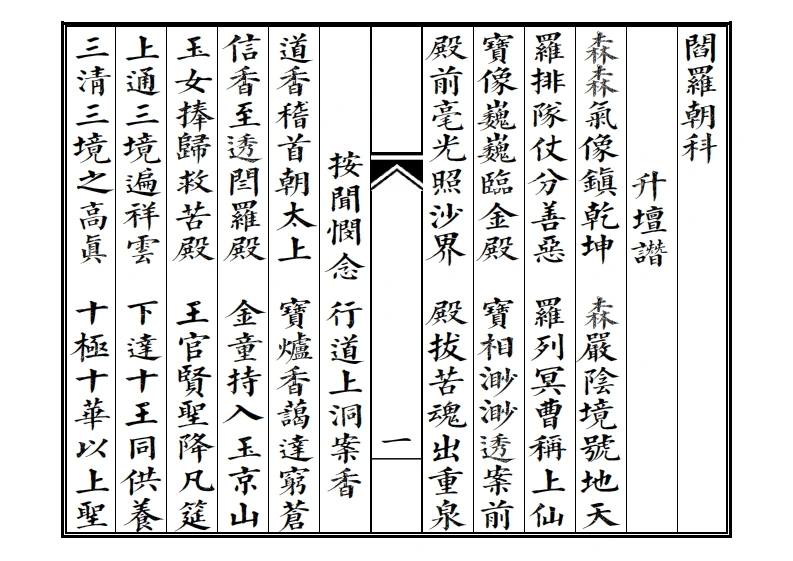 閻羅朝科
升壇讚
森森氣像鎮乾坤　森嚴陰境號地天
羅排隊仗分善惡　羅列冥曹稱上仙
寶像巍巍臨金殿　寶相渺渺透案前
殿前毫光照沙界　殿拔苦魂出重泉
一
按聞憫念　行道上洞案香
道香稽首朝太上　寶爐香藹達窮蒼
信香至透閆羅殿　金童持入玉京山
玉女捧歸救苦殿　王官賢聖降凡筵
上通三境遍祥雲　下達十王同供養
三清三境之高眞　十極十華以上聖